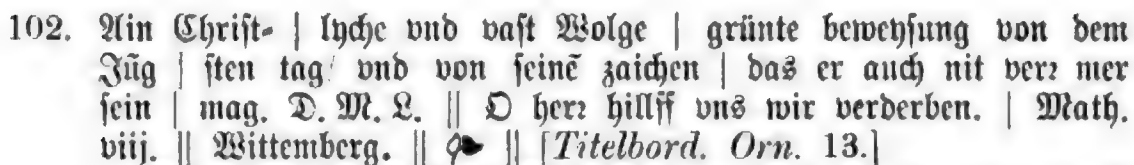 102. Ain Chriſt- | lyche vnd vaſt Wolge | grünte beweyſung von dem
Jüg | ſten tag vnd von ſeinē zaichen | das er auch nit verꝛ mer
ſein | mag. D. M. L. || O herꝛ hillff vns wir verderben. | Math.
viij. || Wittemberg. || ❧ || [Titelbord. Orn. 13.]